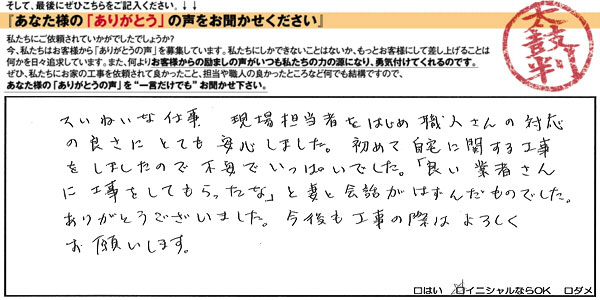 そして、最後にぜひこちらをご記入ください。↓↓
『あなた様の「ありがとう」の声をお聞かせください』
私たちにご依頼されていかがでしたでしょうか?
今、私たちはお客様から「ありがとうの声」を募集しています。私たちにしかできないことはないか、もっとお客様にして差し上げることは
何かを日々追求しています。また、何よりお客様からの励ましの声がいつも私たちの力の源になり、勇気付けてくれるのです。
ぜひ、私たちにお家の工事を依頼されて良かったこと、担当や職人の良かったところなど何でも結構ですので、
あなた様の「ありがとうの声」を“一言だけでも”お聞かせ下さい。
太鼓判
ていねいな仕事 現場担当者をはじめ職人さんの対応
の良さにとても安心しました。初めて自宅に関する工事
をしましたので不安でいっぱいでした。「良い業者さん
に工事をしてもらったな」と妻と会話がはずんだものでした。
ありがとうございました。今後も工事の際はよろしく
お願いします。
口はい 口イニシャルならOK 口ダメ